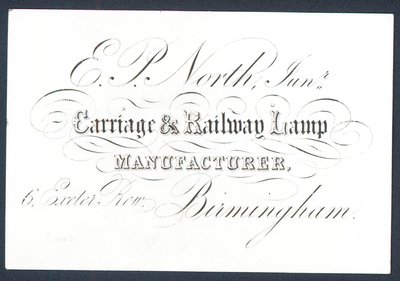 E. P. North, Junr.
Carriage & Railway Lamp
MANUFACTURER,
6, Exeter Row, Birmingham.